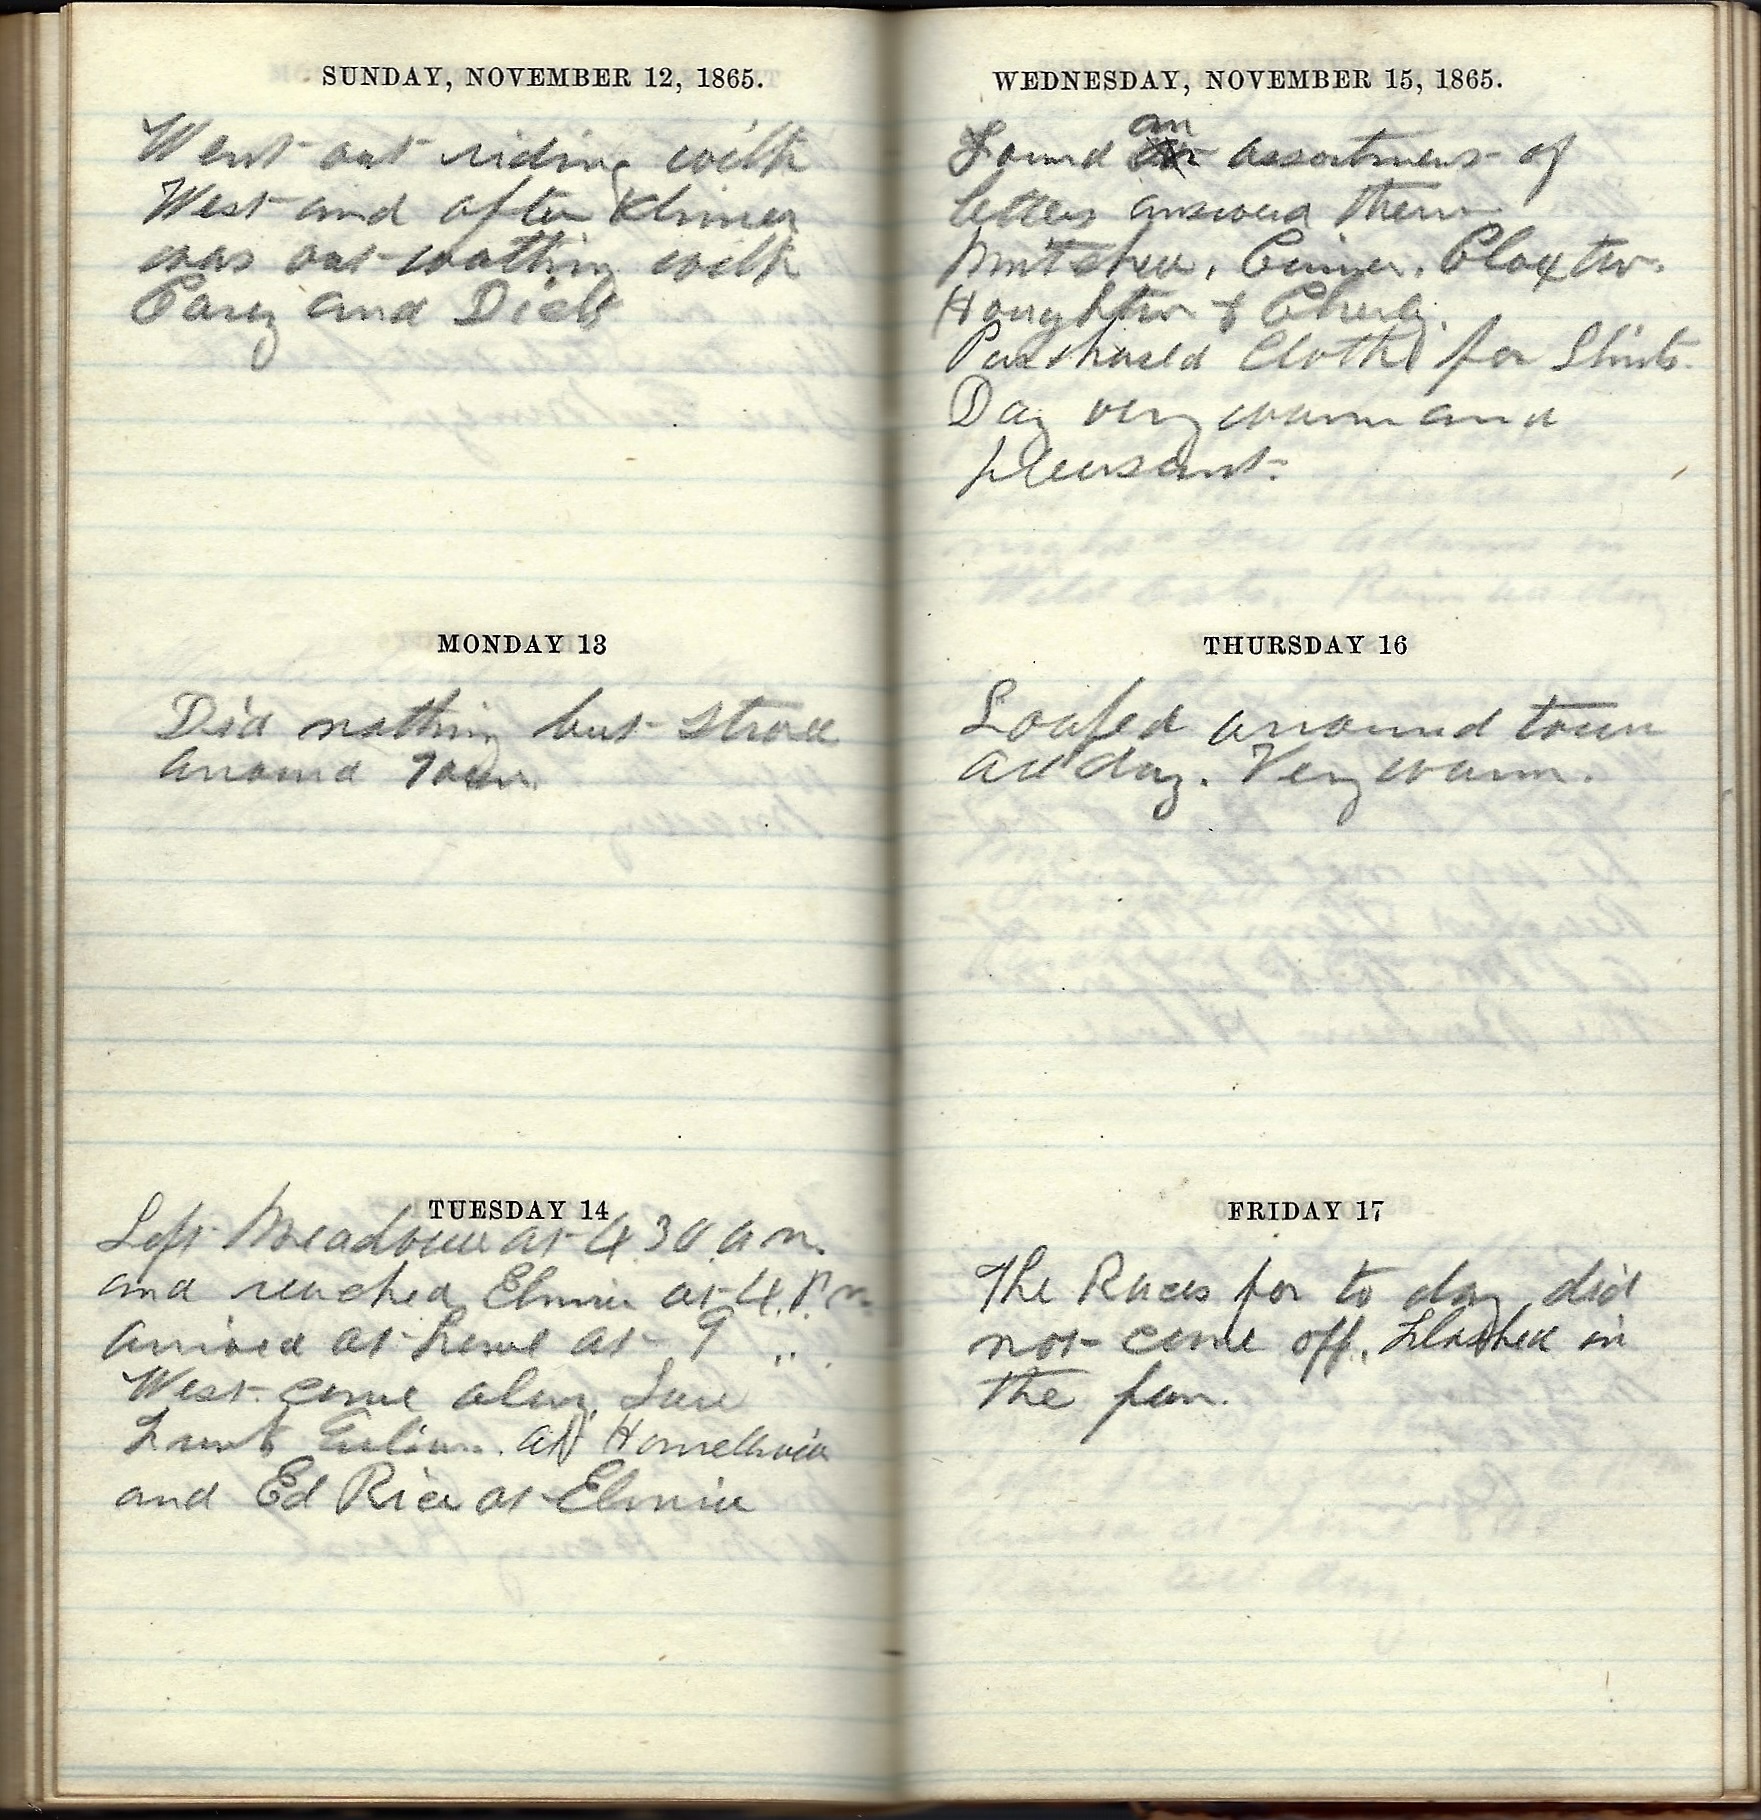 SUNDAY, NOVEMBER 12, 1865.
Went out riding with
West and after
was out walking with
and Dick
MONDAY 13
Did nothing but stroll
around Town
TUESDAY 14
Left Meadville at 4.30 a m.
and reached Elmira at 4. P m.
arrived at home at 9 " .
West come along. Saw
at Hornellsville
and Ed Rice at Elmira
WEDNESDAY, NOVEMBER 15, 1865.
Found an assortment of
letters answerd them
Claxton.
Houghton &
Purchased Cloth for Shirts.
Day very warm and
pleasant.
THURSDAY 16
Loafed around town
all day. Very warm.
FRIDAY 17
The Races for to day did
not come off. in
the